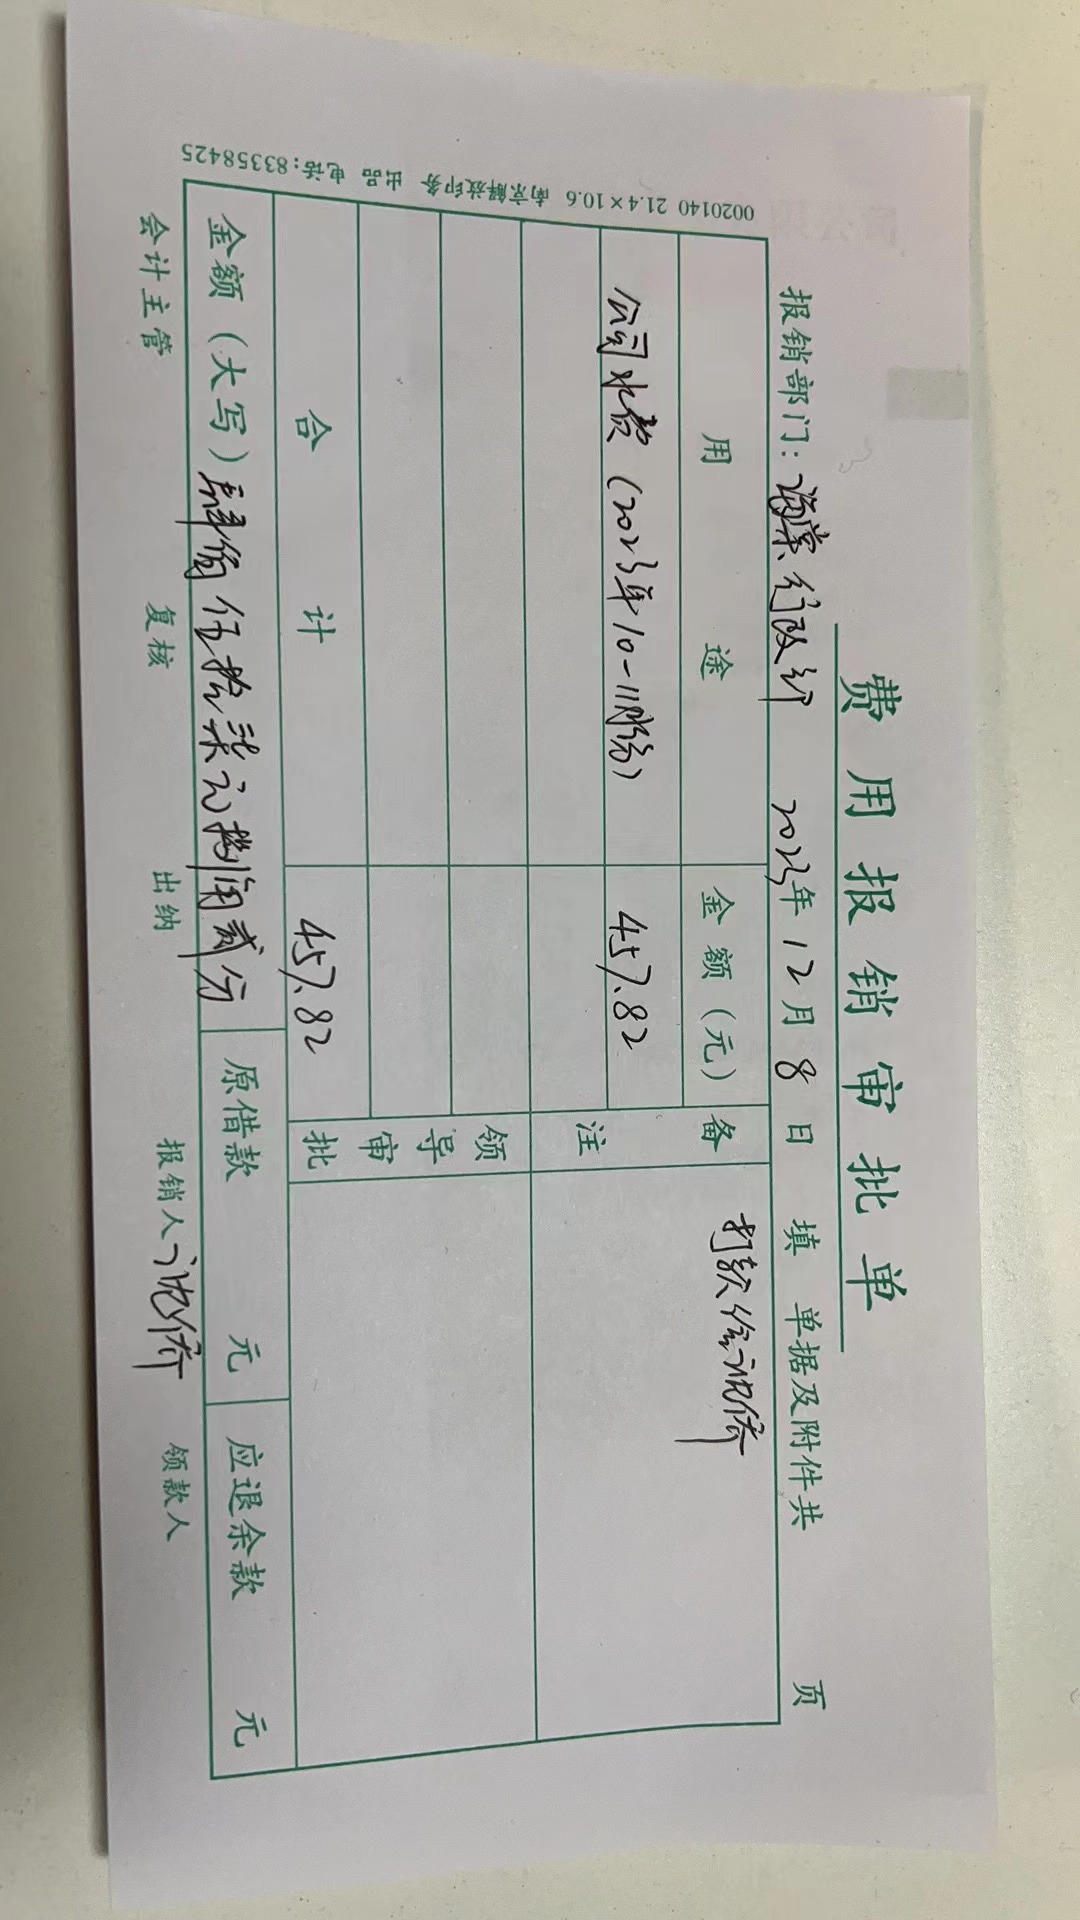 费用报销审批单
报销部门：海棠行政部 2023年12月8日 填 单据及附件共 页
用途 金额（元） 备注 打款给沈侨
公司水费（2023年10-11月份） 457.82
领导审批
合计 457.82
金额（大写）肆佰伍拾柒元捌角贰分 原借款 元 应退余款 元
会计主管 复核 出纳 报销人 沈侨 领款人
0020140 21.4×10.6 南京解放印务 出品 电话：83358425